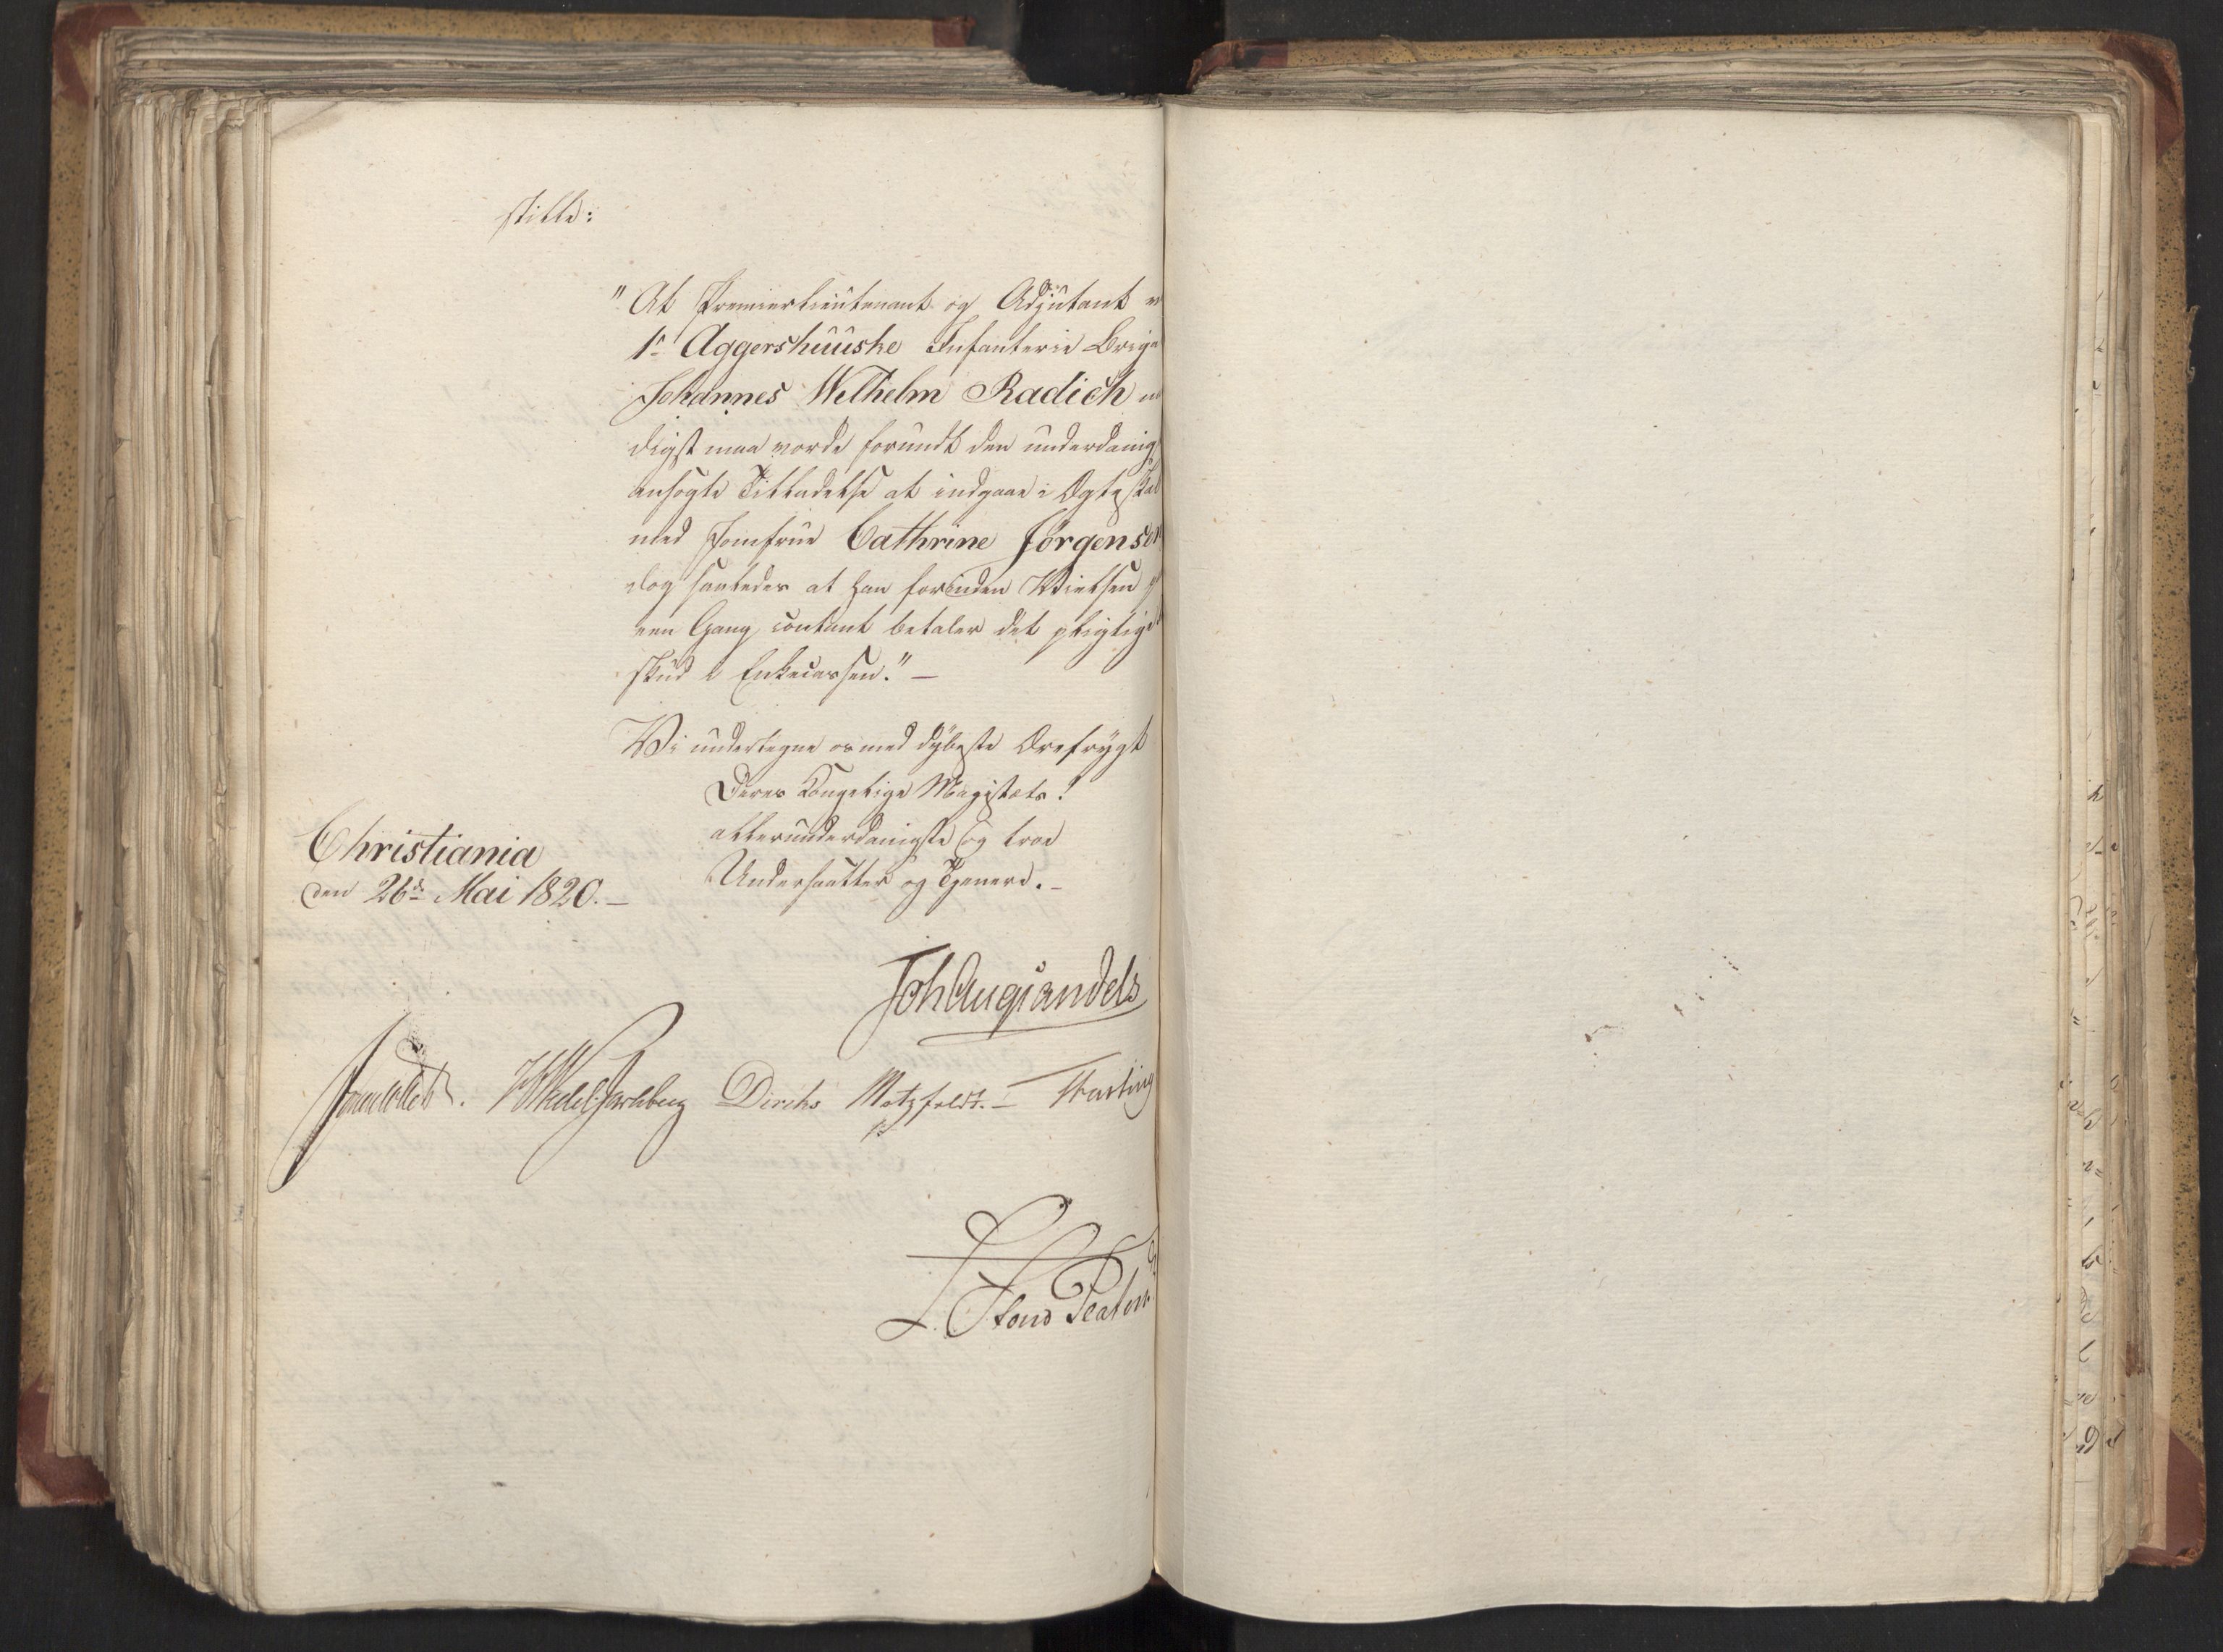 stille:
"At Premierlieutenant og Adjutant v
1ste Aggershuuske Infanterie Briga
Johannes Wilhelm Radich na
digst maa vorde forundt den underdanig
ansøgte Tilladelse at indgaae i Ægteskab
med Jomfrue Cathrine Jørgensen
dog saaledes at han forinden Vielsen p
een Gang contant betaler det pligtige
skud i Enkecassen." —
Vi undertegne os med dybeste Ærefrygt
Deres Kongelige Majestæts!
allerunderdanigste og troe
Undersaatter og Tjenere. —
Christiania
den 26de Mai 1820. —
Joh Aug Sandels
Sommerfeldt. HWedelJarlsberg Diriks Motzfeldt. — Fasting
L. Stoud Platou